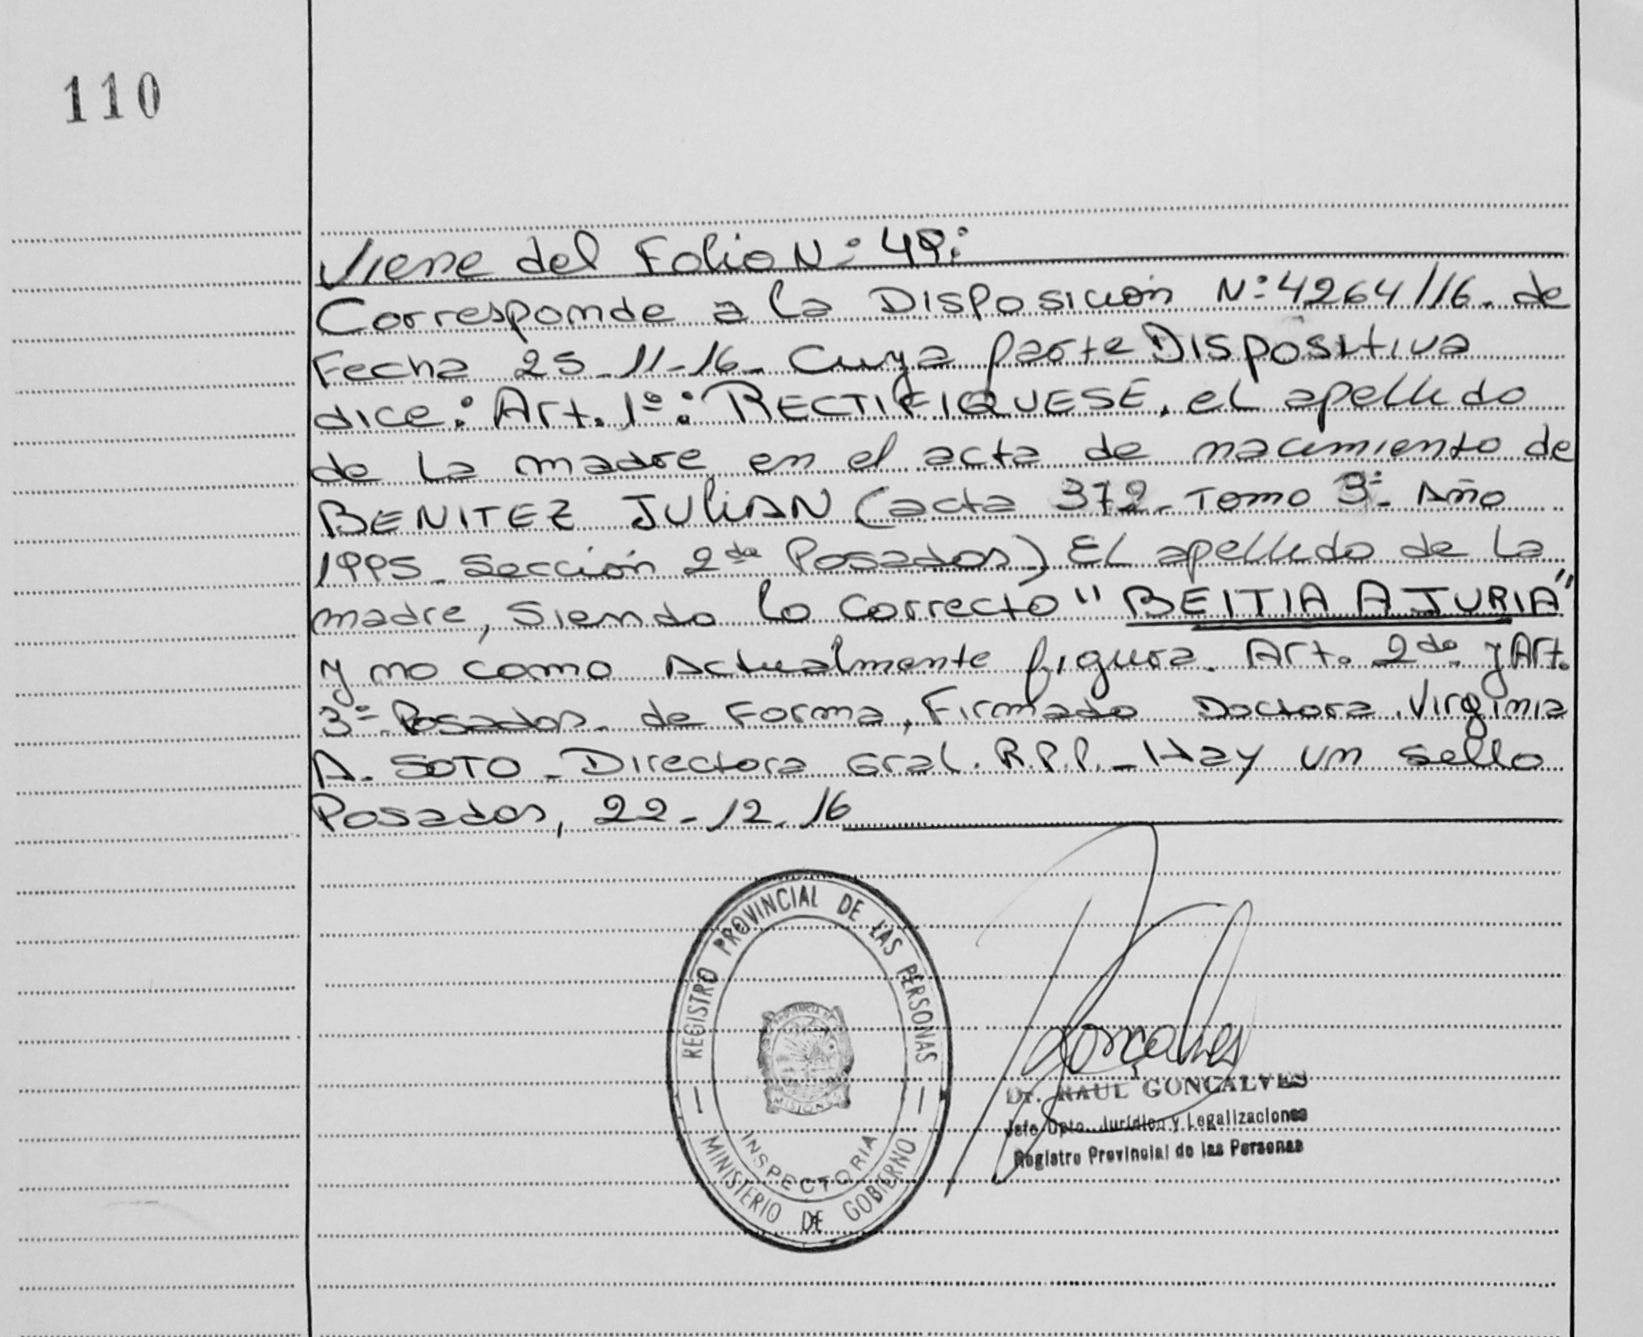 110
Viene del Folio N° 49:
Corresponde a la Disposición N° 4264/16. de
Fecha 25-11-16- Cuya parte Dispositiva
dice: Art. 1°: RECTIFIQUESE, el apellido
de la madre en el acta de nacimiento de
BENITEZ JULIAN (acta 372- Tomo 3°- Año
1995- Sección 2da Posadas) El apellido de la
madre, Siendo lo Correcto "BEITIA AJURIA"
y no como Actualmente figura. Art. 2do y Art.
3°- Posadas- de Forma, Firmado Doctora Virginia
A. SOTO- Directora Gral. R.P.P.- Hay un sello
Posadas, 22-12-16
REGISTRO PROVINCIAL DE LAS PERSONAS
PROVINCIA DE
MISIONES
INSPECTORIA
MINISTERIO DE GOBIERNO
Gonçalves
Dr. RAUL GONÇALVES
Jefe Dpto. Jurídico y Legalizaciones
Registro Provincial de las Personas